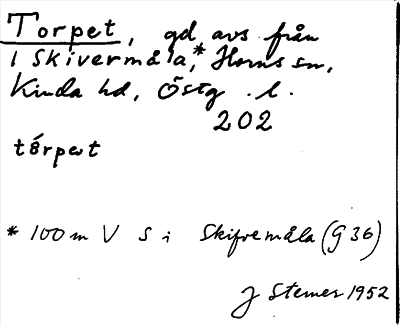 Torpet, gd avs från
1 Skivermåla,* Horns sn,
Kinda hd, Östg. l.
202
tórpet
* 100 m V S i Skifremåla (G 36)
J Stemer 1952